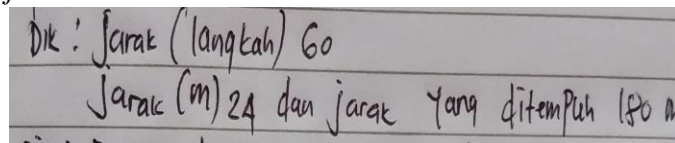 Dik : Jarak (langkah) 60
Jarak (m) 24 dan jarak yang ditempuh 180 m